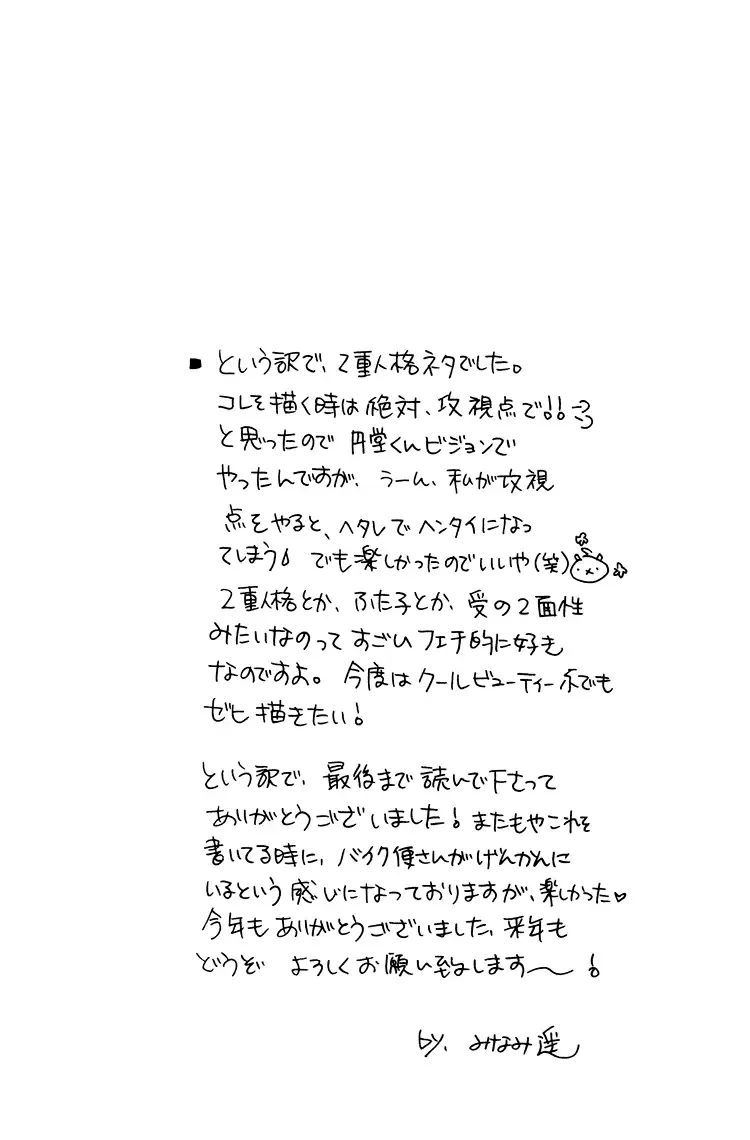 ■ という訳で、2重人格ネタでした。
コレを描く時は絶対、攻視点で!!
と思ったので 円堂くんビジョンで
やったんですが、うーん、私が攻視
点をやると、ヘタレでヘンタイになっ
てしまう! でも楽しかったのでいいや(笑)
2重人格とか、ふた子とか、受の2面性
みたいなのって すごい フェチ的に好き
なのですよ。 今度は クールビューティー でも
ゼヒ 描きたい!
という訳で、最後まで 読んで下さって
ありがとうございました! またもやこれを
書いてる時に、バイク便さんがげんかんに
いるという 感じになっておりますが、楽しかった♥
今年も ありがとうございました、来年も
どうぞ よろしくお願い致します〜!
by. みなみ遥